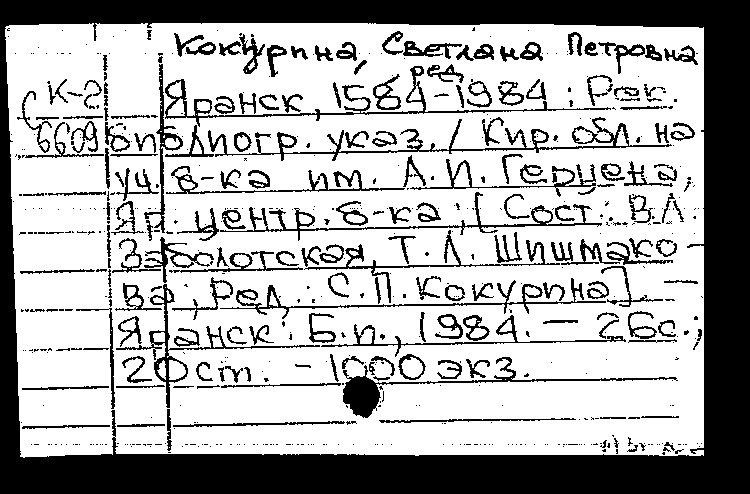 Кокурина, Светлана Петровна
ред.
К-2 Яранск, 1584-1984 : Рек.
6609 библиогр. указ. / Кир. обл. на-
уч. б-ка им. А.И. Герцена,
Яр. центр. б-ка ; [Сост.: В.Л.
Заболотская, Т.Л. Шишмако-
ва ; Ред.: С.П. Кокурина]. —
Яранск : Б.и., 1984. — 26с.;
20 см. - 1000 экз.